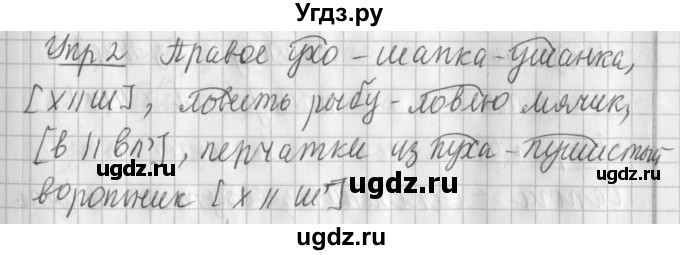 Угдз.ру
Упр 2 Правое ухо - шапка-ушанка,
[х // ш], ловить рыбу - ловлю мячик,
[в // вл'], перчатки из пуха - пушистый
ugdz.ru
ugdz.ru
воротник [х // ш]
ugdz.ru
ugdz.ru